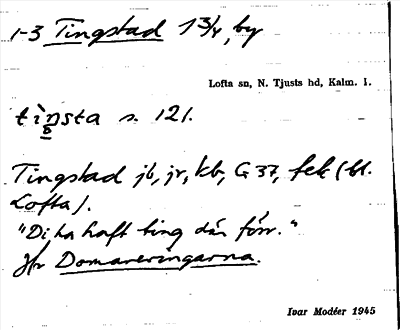 1-3 Tingstad 1 3/4, by
Lofta sn, N. Tjusts hd, Kalm. l.
tìnsta s. 121.
Tingstad jb, jr, kb, G 37, fek (bl.
Lofta).
"Di ha haft ting där förr."
Jfr Domareringarna.
Ivar Modéer 1945